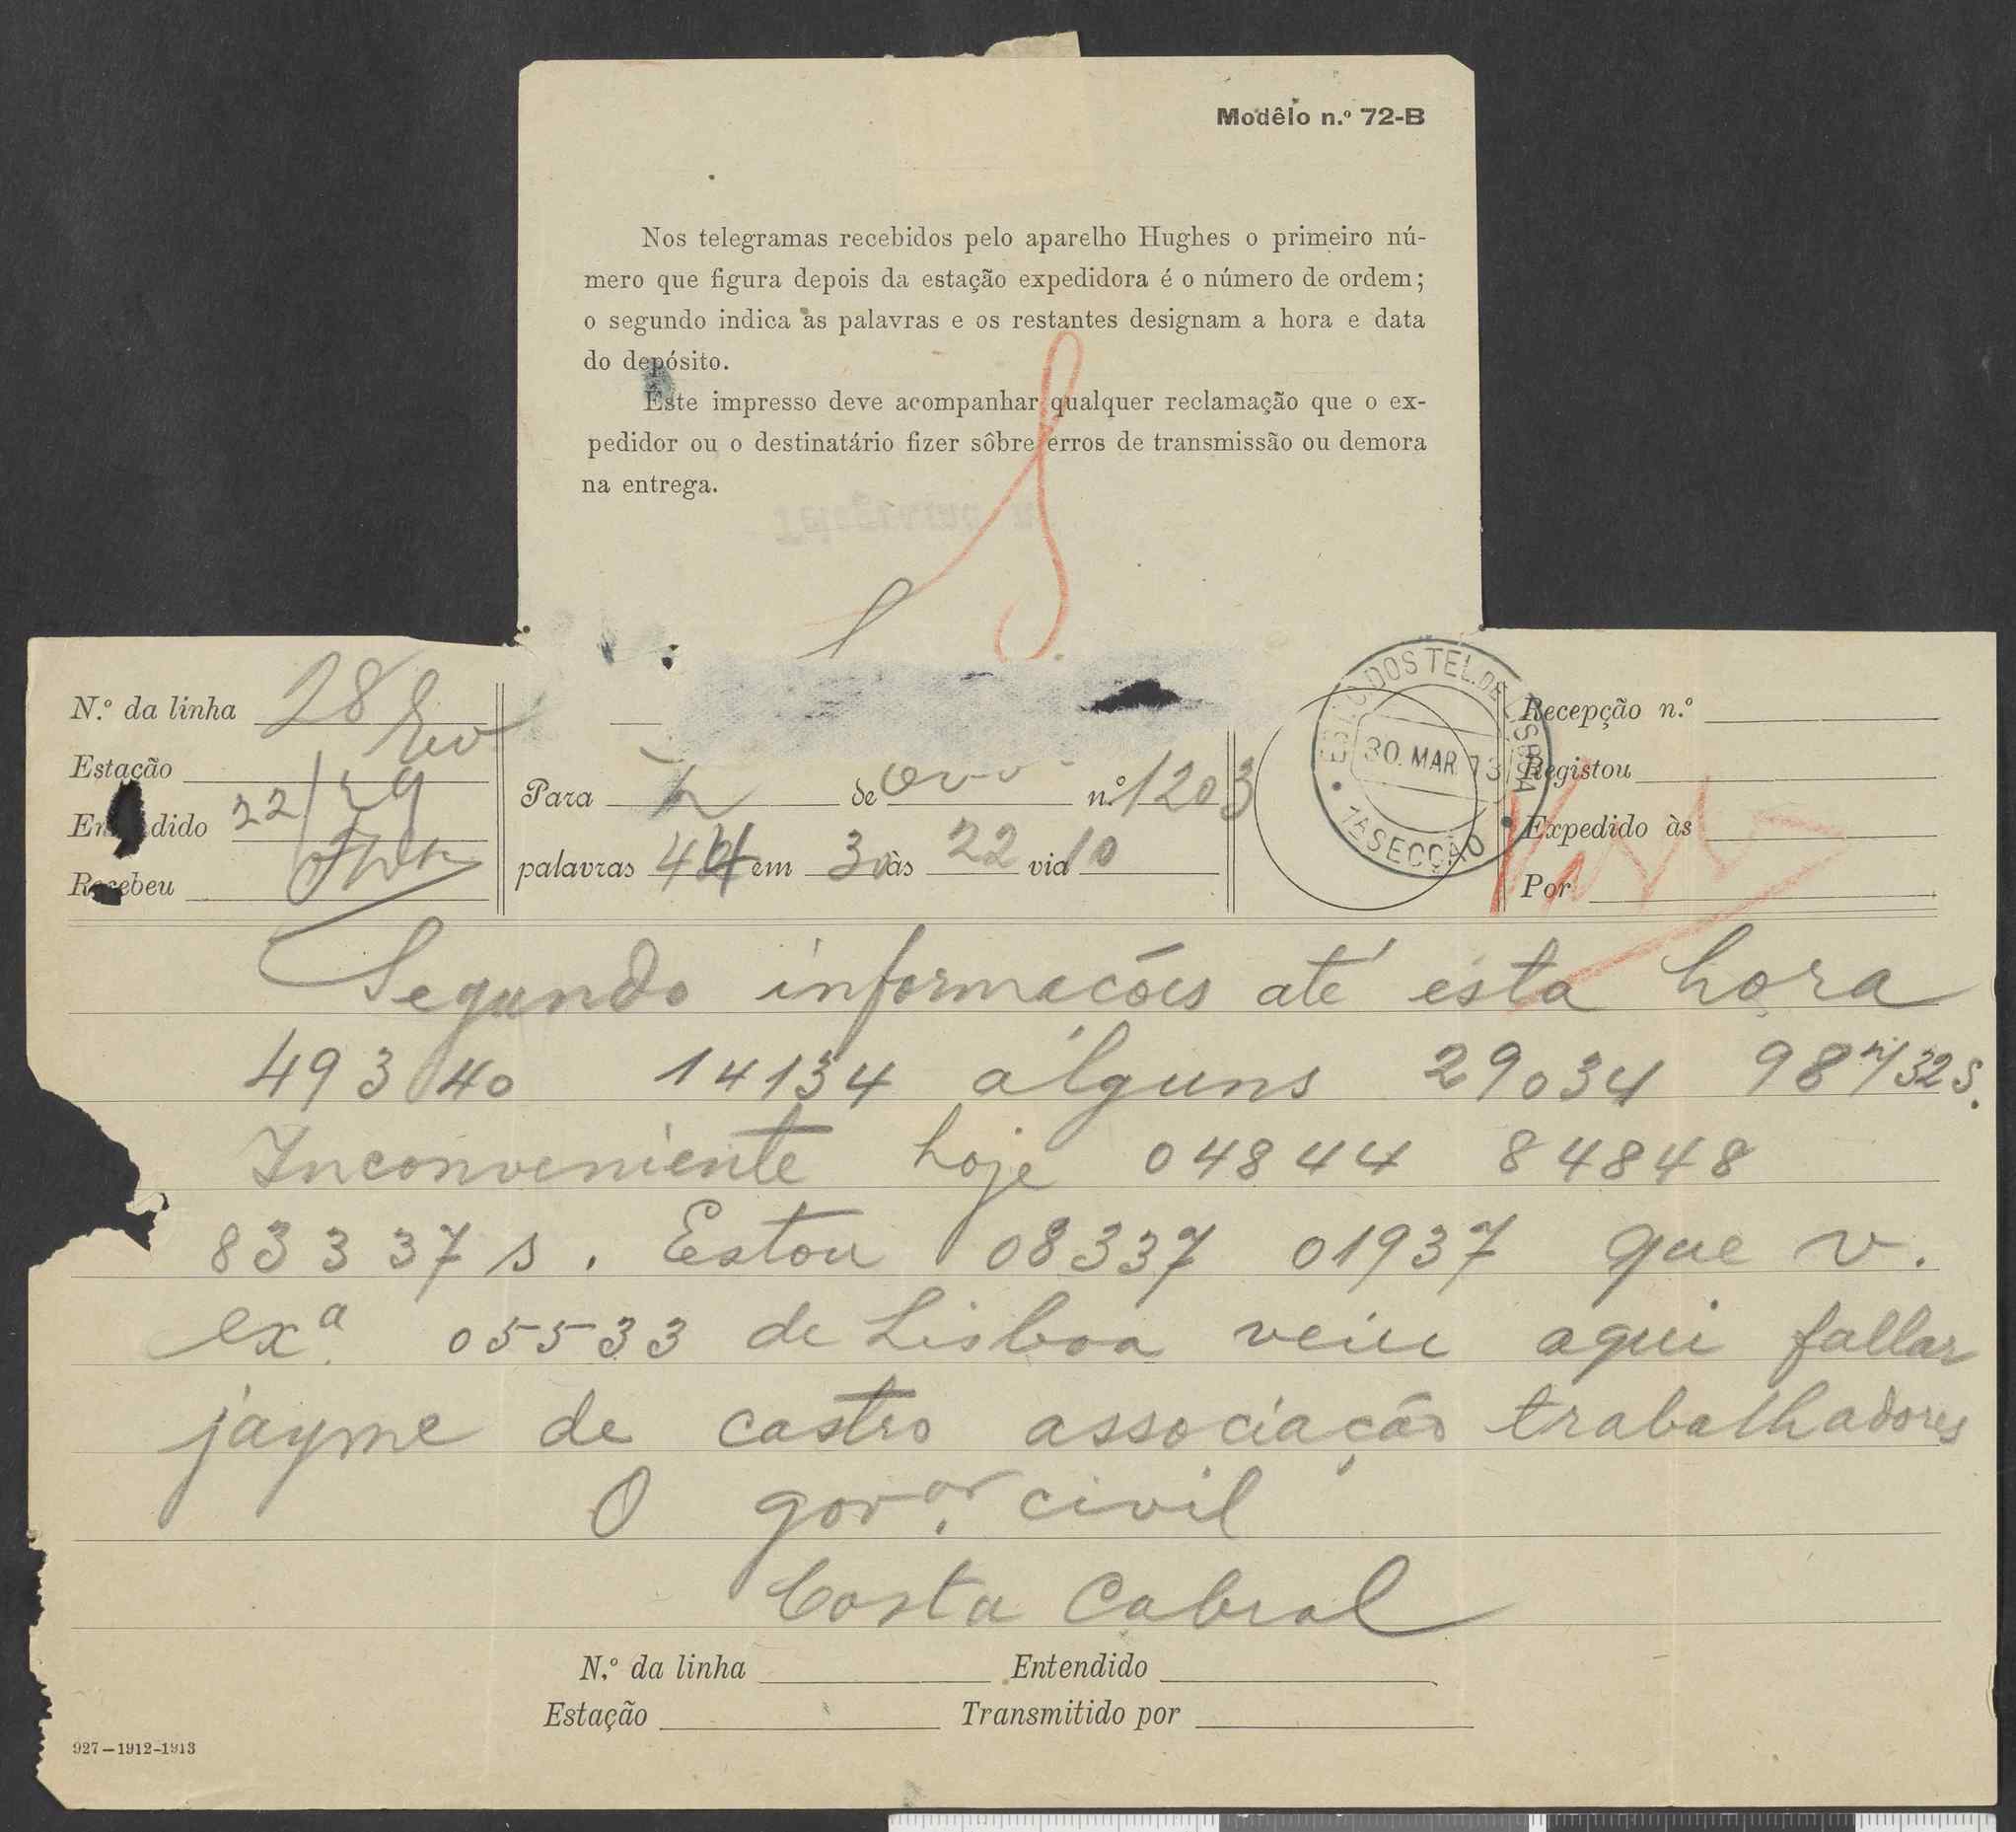 Modêlo n.º 72-B
Nos telegramas recebidos pelo aparelho Hughes o primeiro nú-
mero que figura depois da estação expedidora é o número de ordem;
o segundo indica as palavras e os restantes designam a hora e data
do depósito.
Este impresso deve acompanhar qualquer reclamação que o ex-
pedidor ou o destinatário fizer sôbre erros de transmissão ou demora
na entrega.
N.º da linha 28
Estação
Entendido 22/29
Recebeu
Para L de n.º 1203
palavras 44 em 30 às 22 via 10
DOS TEL. DE LISBOA
30. MAR. 13
1A SECÇÃO
Recepção n.º
Registou
Expedido às
Por
Segundo informacóes até ésta hora
49340 14134 alguns 29034 98732s.
Inconveniente hoje 04844 84848
83337s. Estou 08337 01937 que v.
exª. 05533 de Lisboa veiu aqui fallar
jayme de castro associação trabalhadores
O gov.or civil
Costa Cabral
N.º da linha Entendido
Estação Transmitido por
927—1912-1913